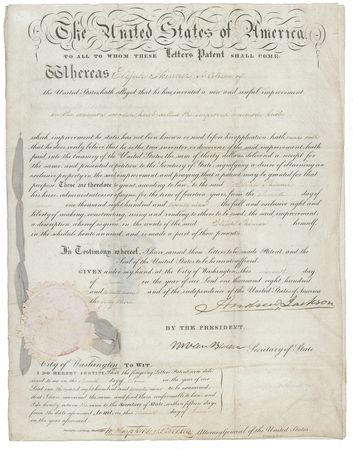 The United States of America
TO ALL TO WHOM THESE Letters Patent SHALL COME:
Whereas Elijah Skinner, A Citizen of
the United States hath alleged that he has invented a new and useful improvement
in the common wooden
which improvement he states has not been known or used before his application hath
that he does verily believe that he is the true inventor or discoverer of the said improvement, hath
paid into the treasury of the United States the sum of thirty dollars, delivered a receipt for
the same, and presented a petition to the Secretary of State, signifying a desire of obtaining an
exclusive property in the said improvement, and praying that a patent may be granted for that
purpose. These are therefore to grant, according to law, to the said Elijah Skinner
his heirs, administrators or assigns, for the term of fourteen years from the day of
one thousand eight hundred and twenty nine the full and exclusive right and
liberty of making, constructing, using and vending to others to be used, the said improvement,
a description whereof is given in the words of the said Elijah Skinner himself,
in the schedule hereto annexed, and is made a part of these presents.
In Testimony whereof, I have caused these Letters to be made Patent, and the
Seal of the United States to be hereunto affixed.
GIVEN under my hand, at the City of Washington, this day
of in the year of our Lord one thousand eight hundred
and and of the independence of the United States of America
the fifty third
Andrew Jackson
BY THE PRESIDENT.
M Van Buren Secretary of State
City of Washington, TO WIT:
I DO HEREBY CERTIFY, That the foregoing Letters Patent were delivered
to me on the day of in the year of our
Lord one thousand eight hundred and twenty nine to be examined,
that I have examined the same, and find them conformable to law, and
I do hereby return the same to the Secretary of State, within fifteen days
from the date aforesaid, to wit, on this day of
in the year aforesaid.
Attorney General of the United States